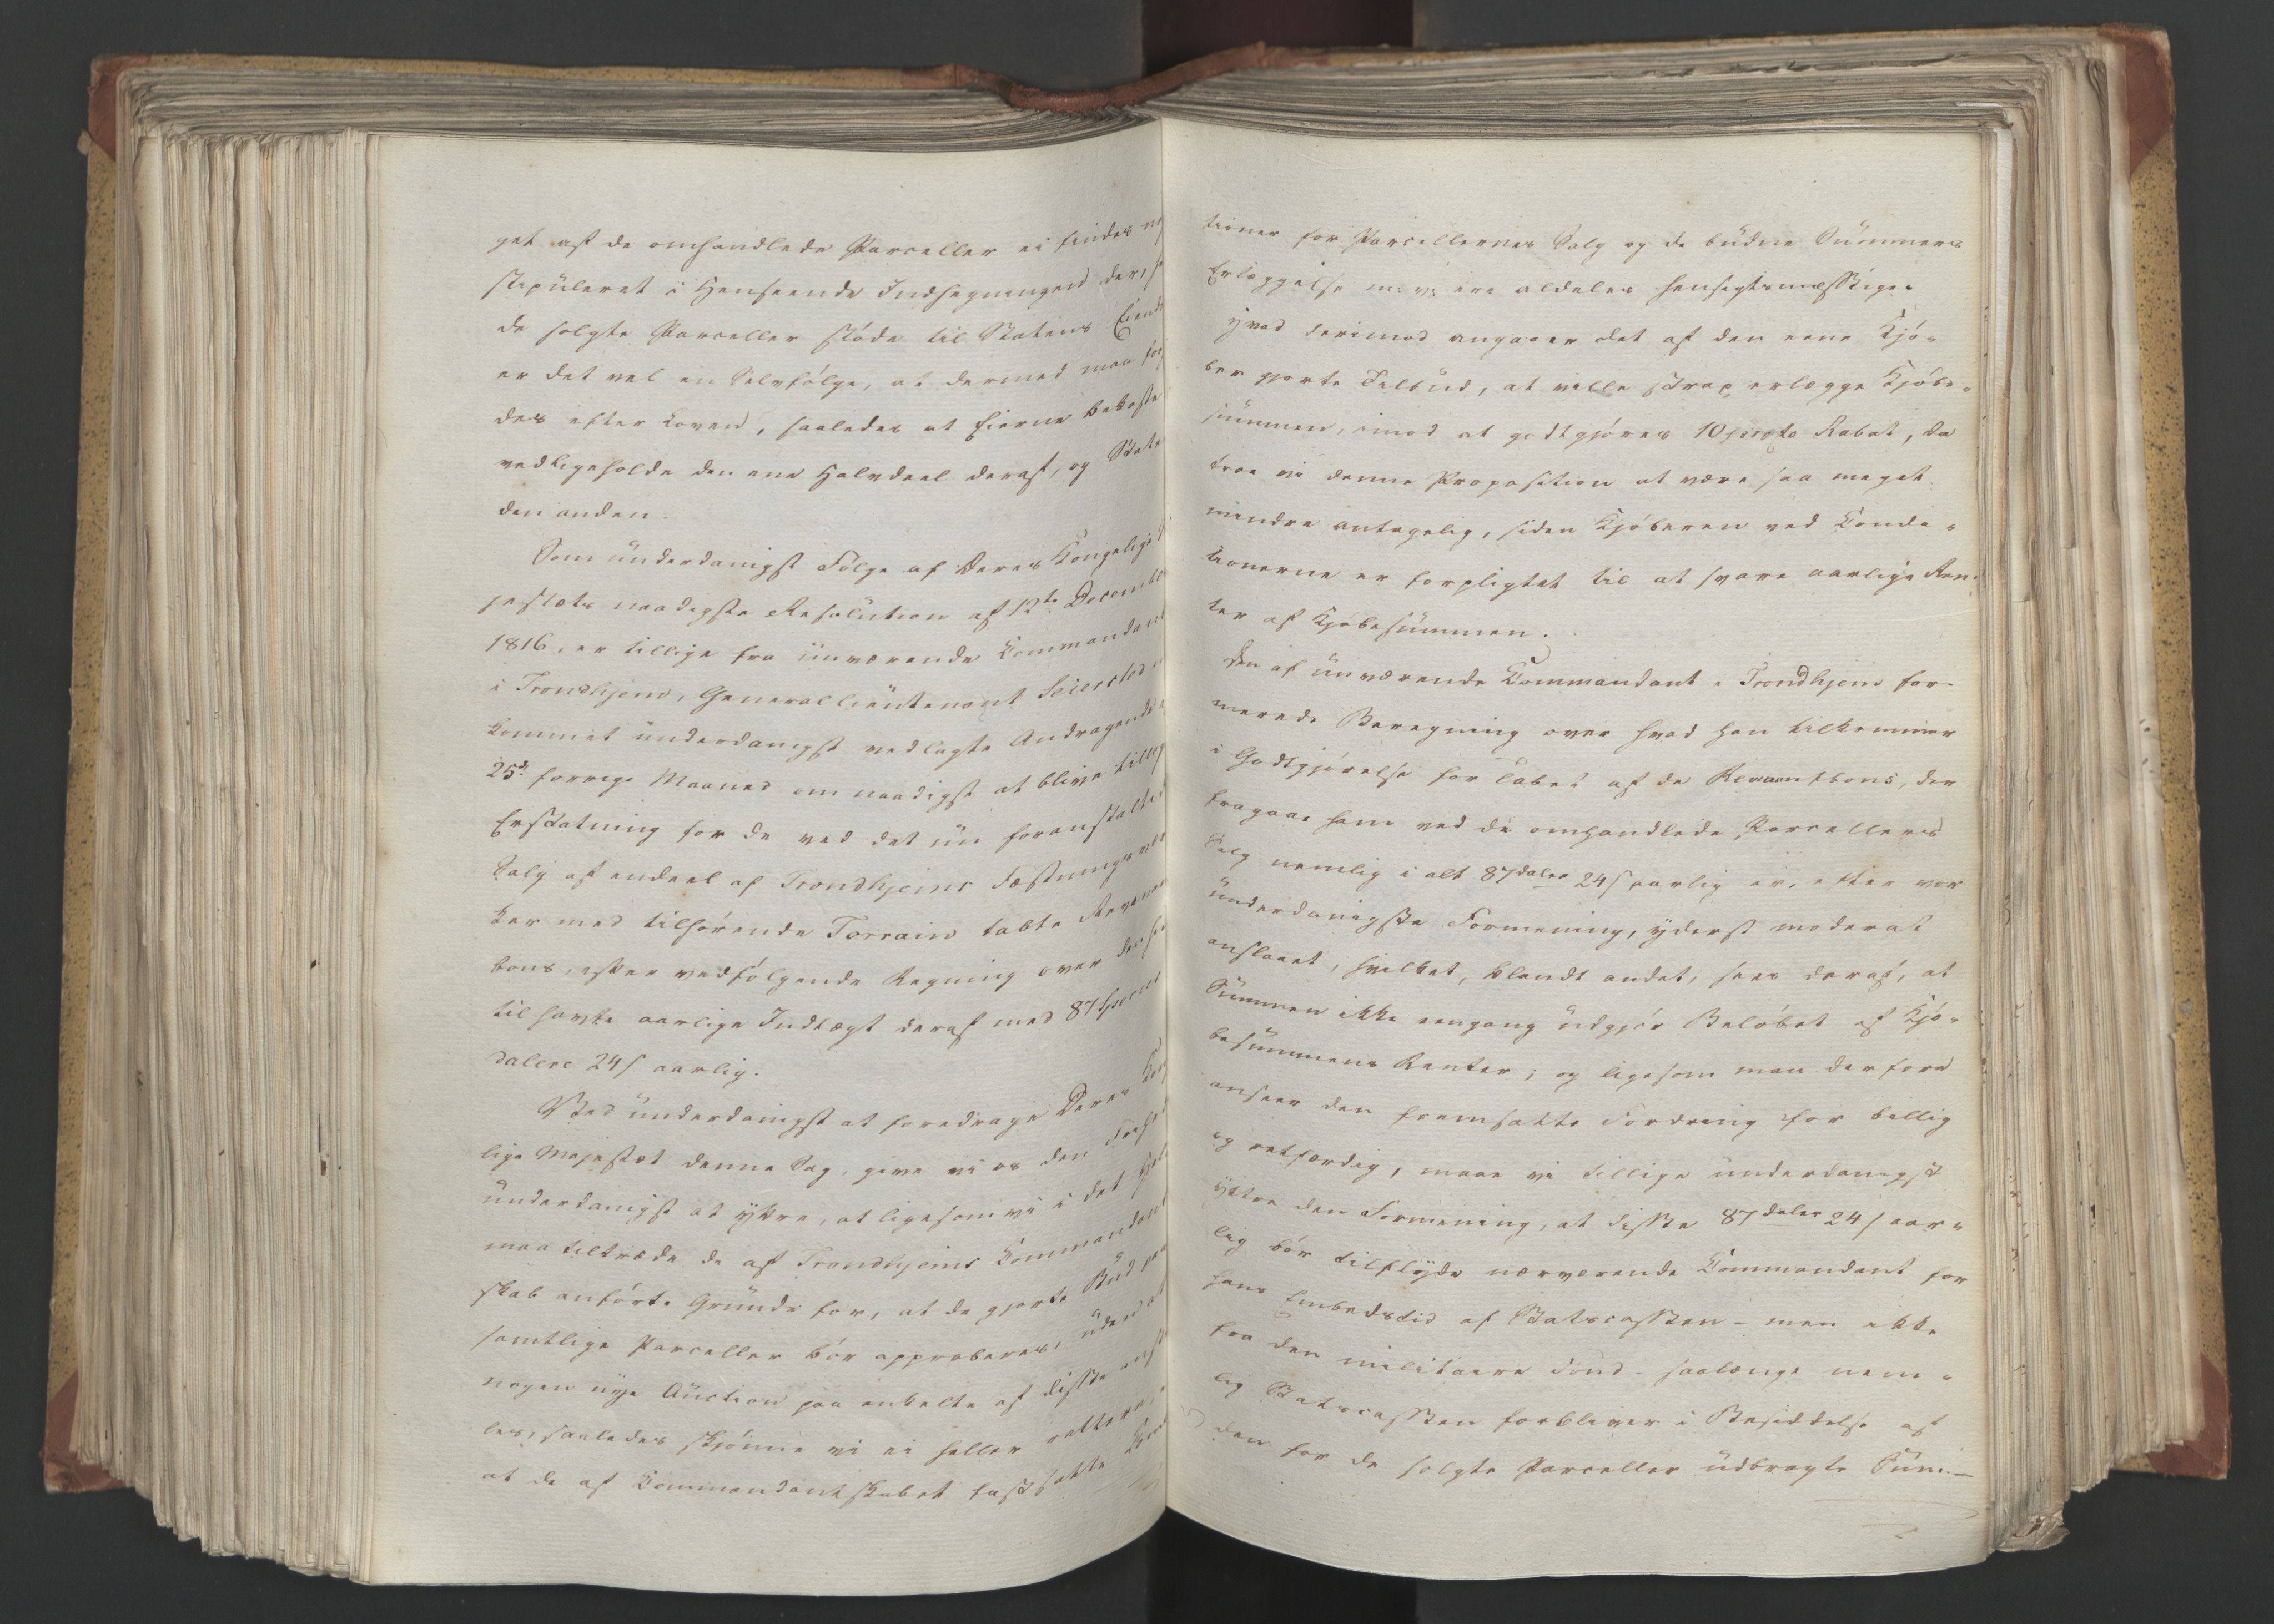 get af de omhandlede Parceller ei findes
stipuleret i Henseende Indhegningen der,
de solgte Parceller støde til Statens Eiend
er det vel en Selvfølge, at dermed maa for
des efter Loven, saaledes at Eierne bekoste
vedligeholde den ene Halvdeel deraf, og State
den anden.
Som underdanigst Følge af Deres Kongelige
jestæts naadigste Resolution af 12te Decembe
1816, er tillige fra nuværende Commandant
i Trondhjem, Generallieutenant Seiersted
kommet underdanigst vedlagte Andragende
25de forrige Maaned om naadigst at blive tillag
Erstatning for de ved det nu foranstalted
Salg af endeel af Trondhjems Fæstningsvær
ker med tilhørende Terrain tabte Revenu
bons, efter vedfølgende Regning over den
til havte aarlige Indtægt deraf med 87 Specie
dalere 24 s aarlig.
Ved underdanigst at foredrage Deres Kong
lige Majestæt denne Sag, give vi os den Frihe
underdanigst at yttre, at ligesom vi i det Hele
maa tiltræde de af Trondhjems Commandant
skab anførte Grunde for, at de gjorte Bud paa
samtlige Parceller bør approberes, uden at
nogen nye Auction paa enkelte af disse anst
les, saaledes skjønne vi ei heller rettere,
at de af Commandantskabet fastsatte Cond
tioner for Parcellernes Salg og de budne Summers
Erlæggelse m: v: ere aldeles hensigtsmæssige.
Hvad derimod angaaer det af den eene Kjø-
ber gjorte Tilbud, at ville strax erlægge Kjøbe-
summen, imod at godtgjøres 10 procto Rabat, da
troe vi denne Proposition at være saa meget
mindre antagelig, siden Kjøberen ved Condi-
tionerne er forpligtet til at svare aarlige Ren-
ter af Kjøbesummen.
Den af nuværende Commandant i Trondhjem for-
merede Beregning over hvad han tilkommer
i Godtgjørelse for Tabet af de Revenusbons, der
fragaae ham ved de omhandlede Parcellers
Salg nemlig i alt 87 daler 24 s aarlig er, efter vor
underdanigste Formening, yderst moderat
anslaaet, hvilket, blandt andet, sees deraf, at
Summen ikke eengang udgjør Beløbet af Kjø-
besummens Renter; og ligesom man derfore
anseer den fremsatte Fordring for billig
og retfærdig, maae vi tillige underdanigst
yttre den Formening, at disse 87 daler 24 s aar-
lig bør tilflyde nærværende Commandant for
hans Embedstid af Statscassen - men ikke
fra den militaire Fond - saalænge nem-
lig Statscassen forbliver i Besiddelse af
den for de solgte Parceller udbragte Sum-